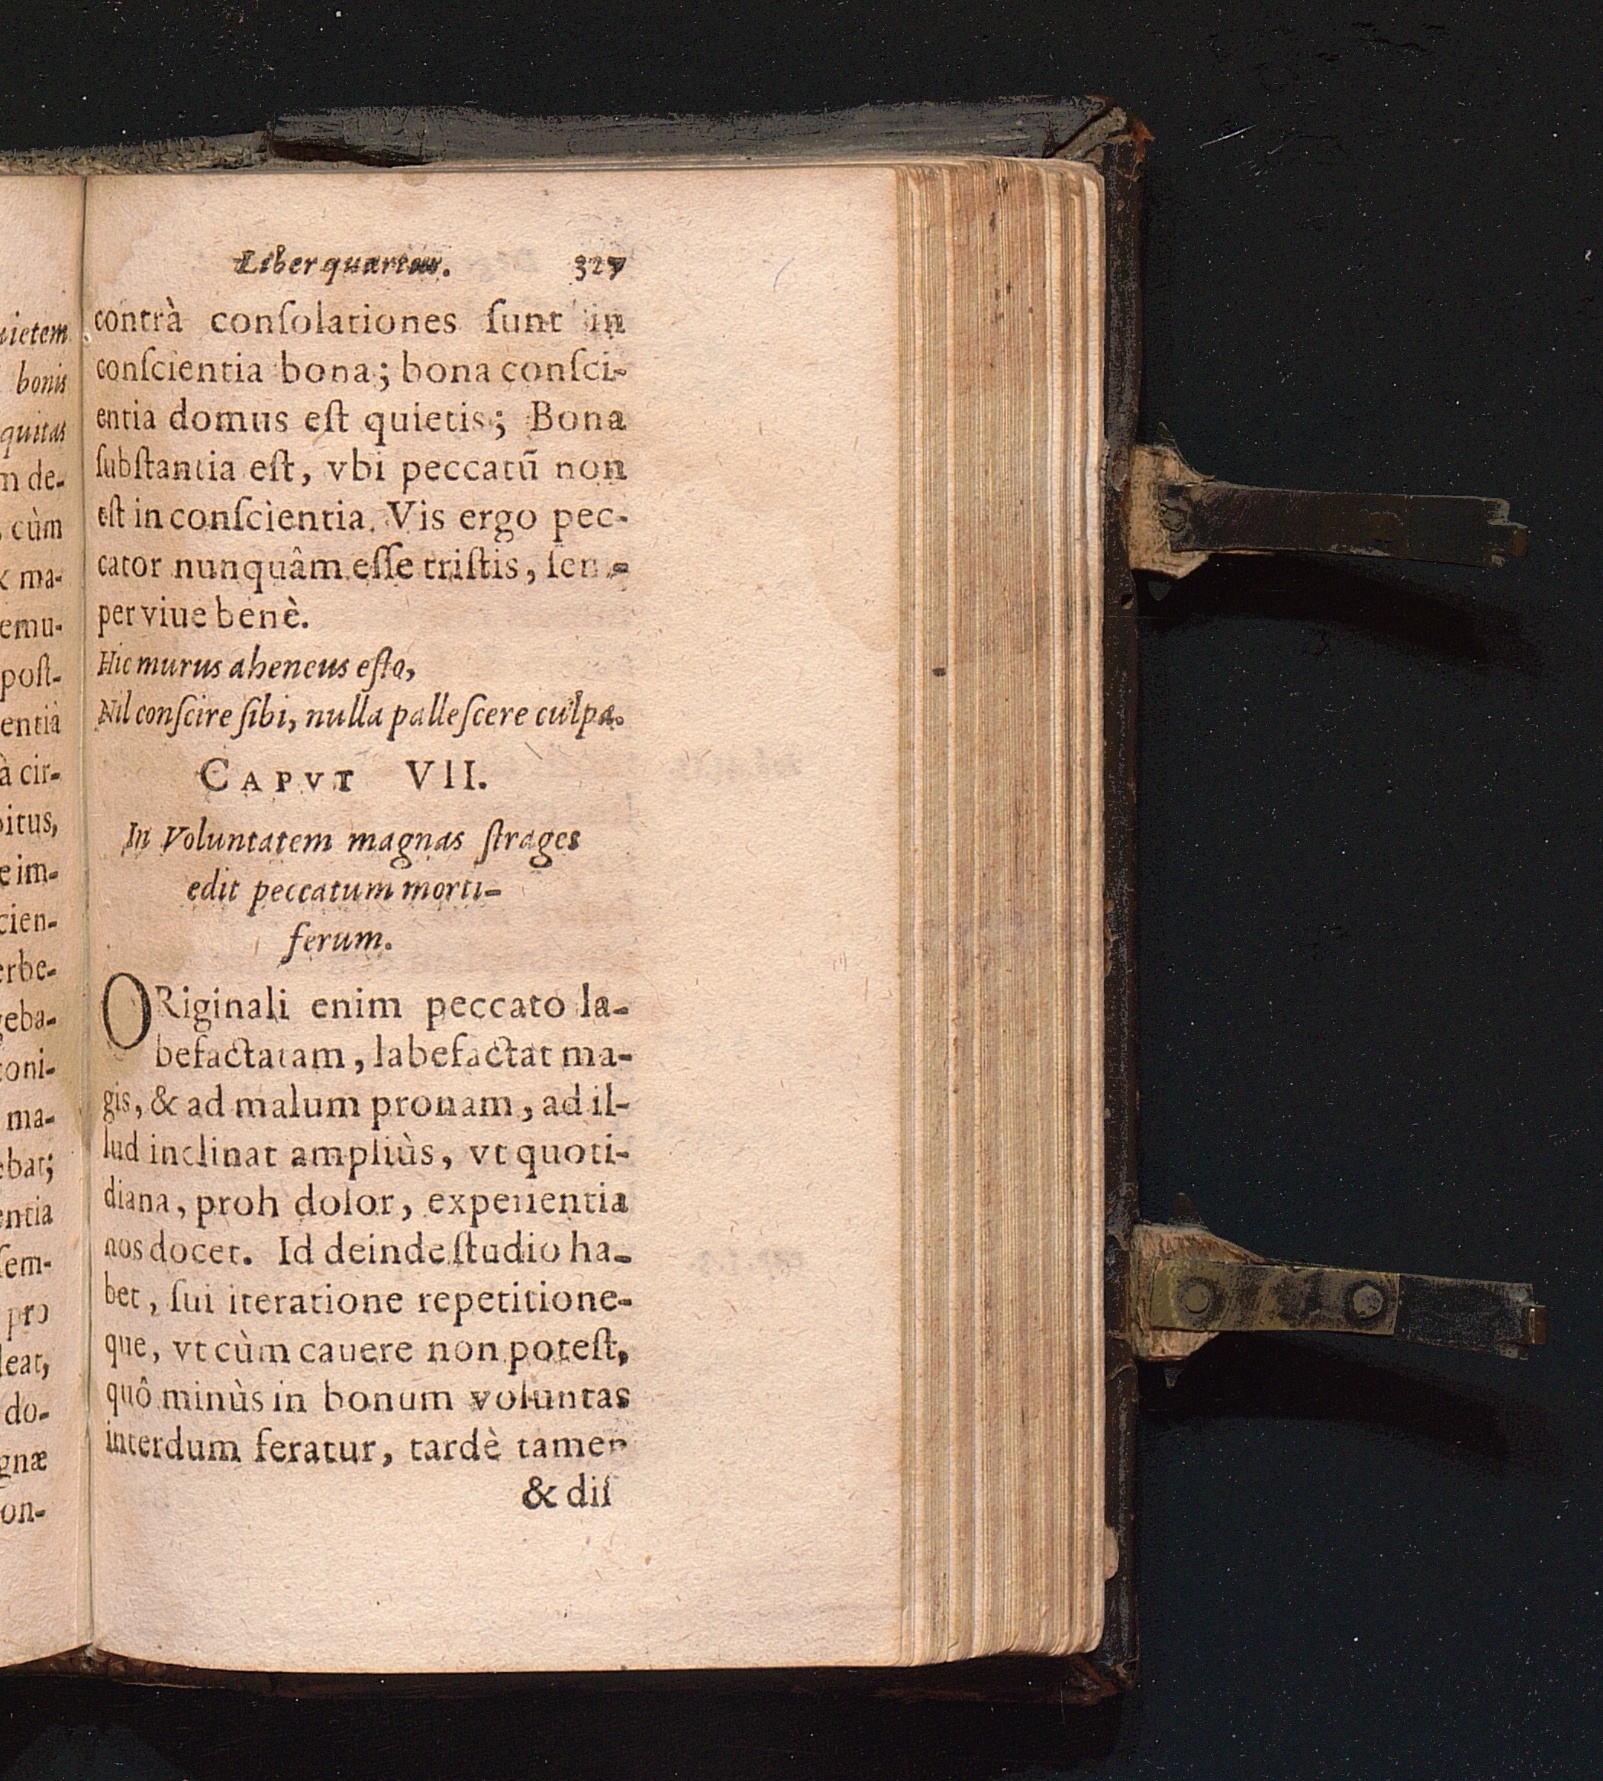 Liber quartus. 327
contrà conſolationes ſunt in
conſcientia bona; bona conſci-
entia domus eſt quietis; Bona
ſubſtantia eſt, vbi peccatũ non
eſt in conſcientia. Vis ergo pec-
cator nunquâm eſſe triſtis, ſem-
per viue benè.
Hic murus aheneus eſto,
Nil conſcire ſibi, nulla palleſcere culpa.
CAPVT VII.
In Voluntatem magnas ſtrages
edit peccatum morti-
ferum.
ORiginali enim peccato la-
befactatam, labefactat ma-
gis, & ad malum pronam, ad il-
lud inclinat ampliùs, vt quoti-
diana, proh dolor, experientia
nos docet. Id deinde ſtudio ha-
bet, ſui iteratione repetitione-
que, vt cùm cauere non poteſt,
quô minùs in bonum voluntas
interdum feratur, tardè tamen
& diſ
uietem
bonis
quitas
m de-
cùm
ma-
emu-
poſt-
entià
à cir-
bitus,
e im-
cien-
erbe-
geba-
coni-
ma-
ebat;
entia
ſem-
pro
leat,
do-
gnæ
on-